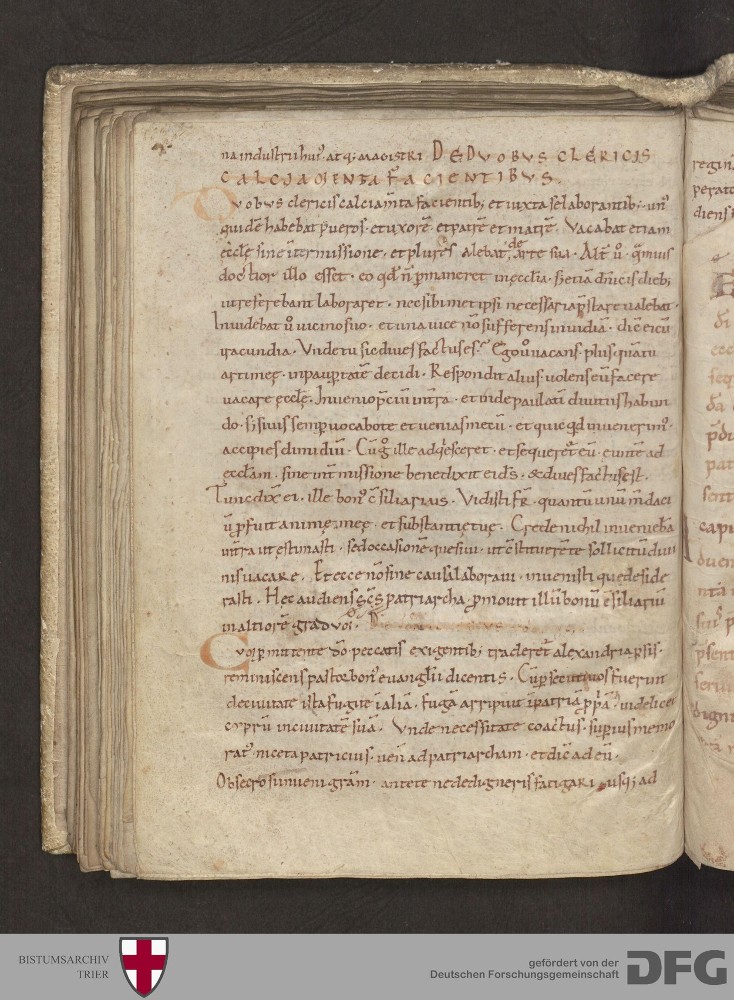 na industrii hui᾽ atq; magistri DE DVOBVS CLERICIS
CALCIAMENTA FACIENTIBVS.
Dvobus clericis calciam̄ta facientib; et iuxta se laborantib; un᾽
quidē habebat pueros · et uxorē · et patrē et matrē · Vacabat etiam
ęccłę sine īt̄missione · et plures alebat de arte sua · Alt̄ ů · quāuis
doctior illo esset · eo qđ n̄ p̄maneret in ęcclia · sł etiā dn̄icis dieb;
ut referebant laboraret · nec sibimet ipsi necessaria p̄stare ualebat ·
Inuidebat ů uicino suo · et una uice nō sufferens inuidiā · dic̄ ei cū
iracundia · Vnde tu sic diues factus es? Ego ů uacans plus quā tu
arti meę · in paup̄tatē decidi · Respondit alius uolens eū facere
uacare ęccłę · Inuenio p̄ciū in t̄ra · et inde paulatī diuitiis habun
do · si si uis semp̄ uoco te et uenias mecū · et quicqđ inuenerim᾽
accipies dimidiū · Cūg̊ ille adq̇esceret · et sequeret̄ eū · eunte ad
ęccłam · sine int̄missione benedixit ei dš · & diues fact᾽ est ·
Tunc dix̄ ei · ille bon᾽ c̄siliari᾽ · Vidisti fr̄ · quantū unū m̄daci
ū p̄fuit animę meę · et substantię tuę · Crede nichil inueniebā
in t̄ra ut ęstimasti · sed occasionē quesiui · ut c̄stituerē te sollicitū diui
nis uacare · Et ecce nō sine causa laboraui · inuenisti quę deside
rasti · Hęc audiens scs̄ patriarcha · p̄mouit illū bonū c̄siliariū
in altiorē gradū
Cvoq; p̄mittente dō · peccatis exigentib; traderet̄ alexandria p̄sis ·
reminiscens pastor bon᾽ euanglii dicentis · Cū p̄secuti uos fuerint
de ciuitate ista fugite ī aliā · fugā arripuit ī patriā p̄p̄ā · uidelicet
cyprū in ciuitatē suā · Vnde necessitate coactus · sup̄ius memo
rat᾽ niceta patricius · uen̄ ad patriarcham · et dic̄ ad eū ·
Obsecro si inueni grām · ante te ne dedigneris fatigari usq; ad
BISTUMSARCHIV
TRIER
gefördert von der
Deutschen Forschungsgemeinschaft
DFG